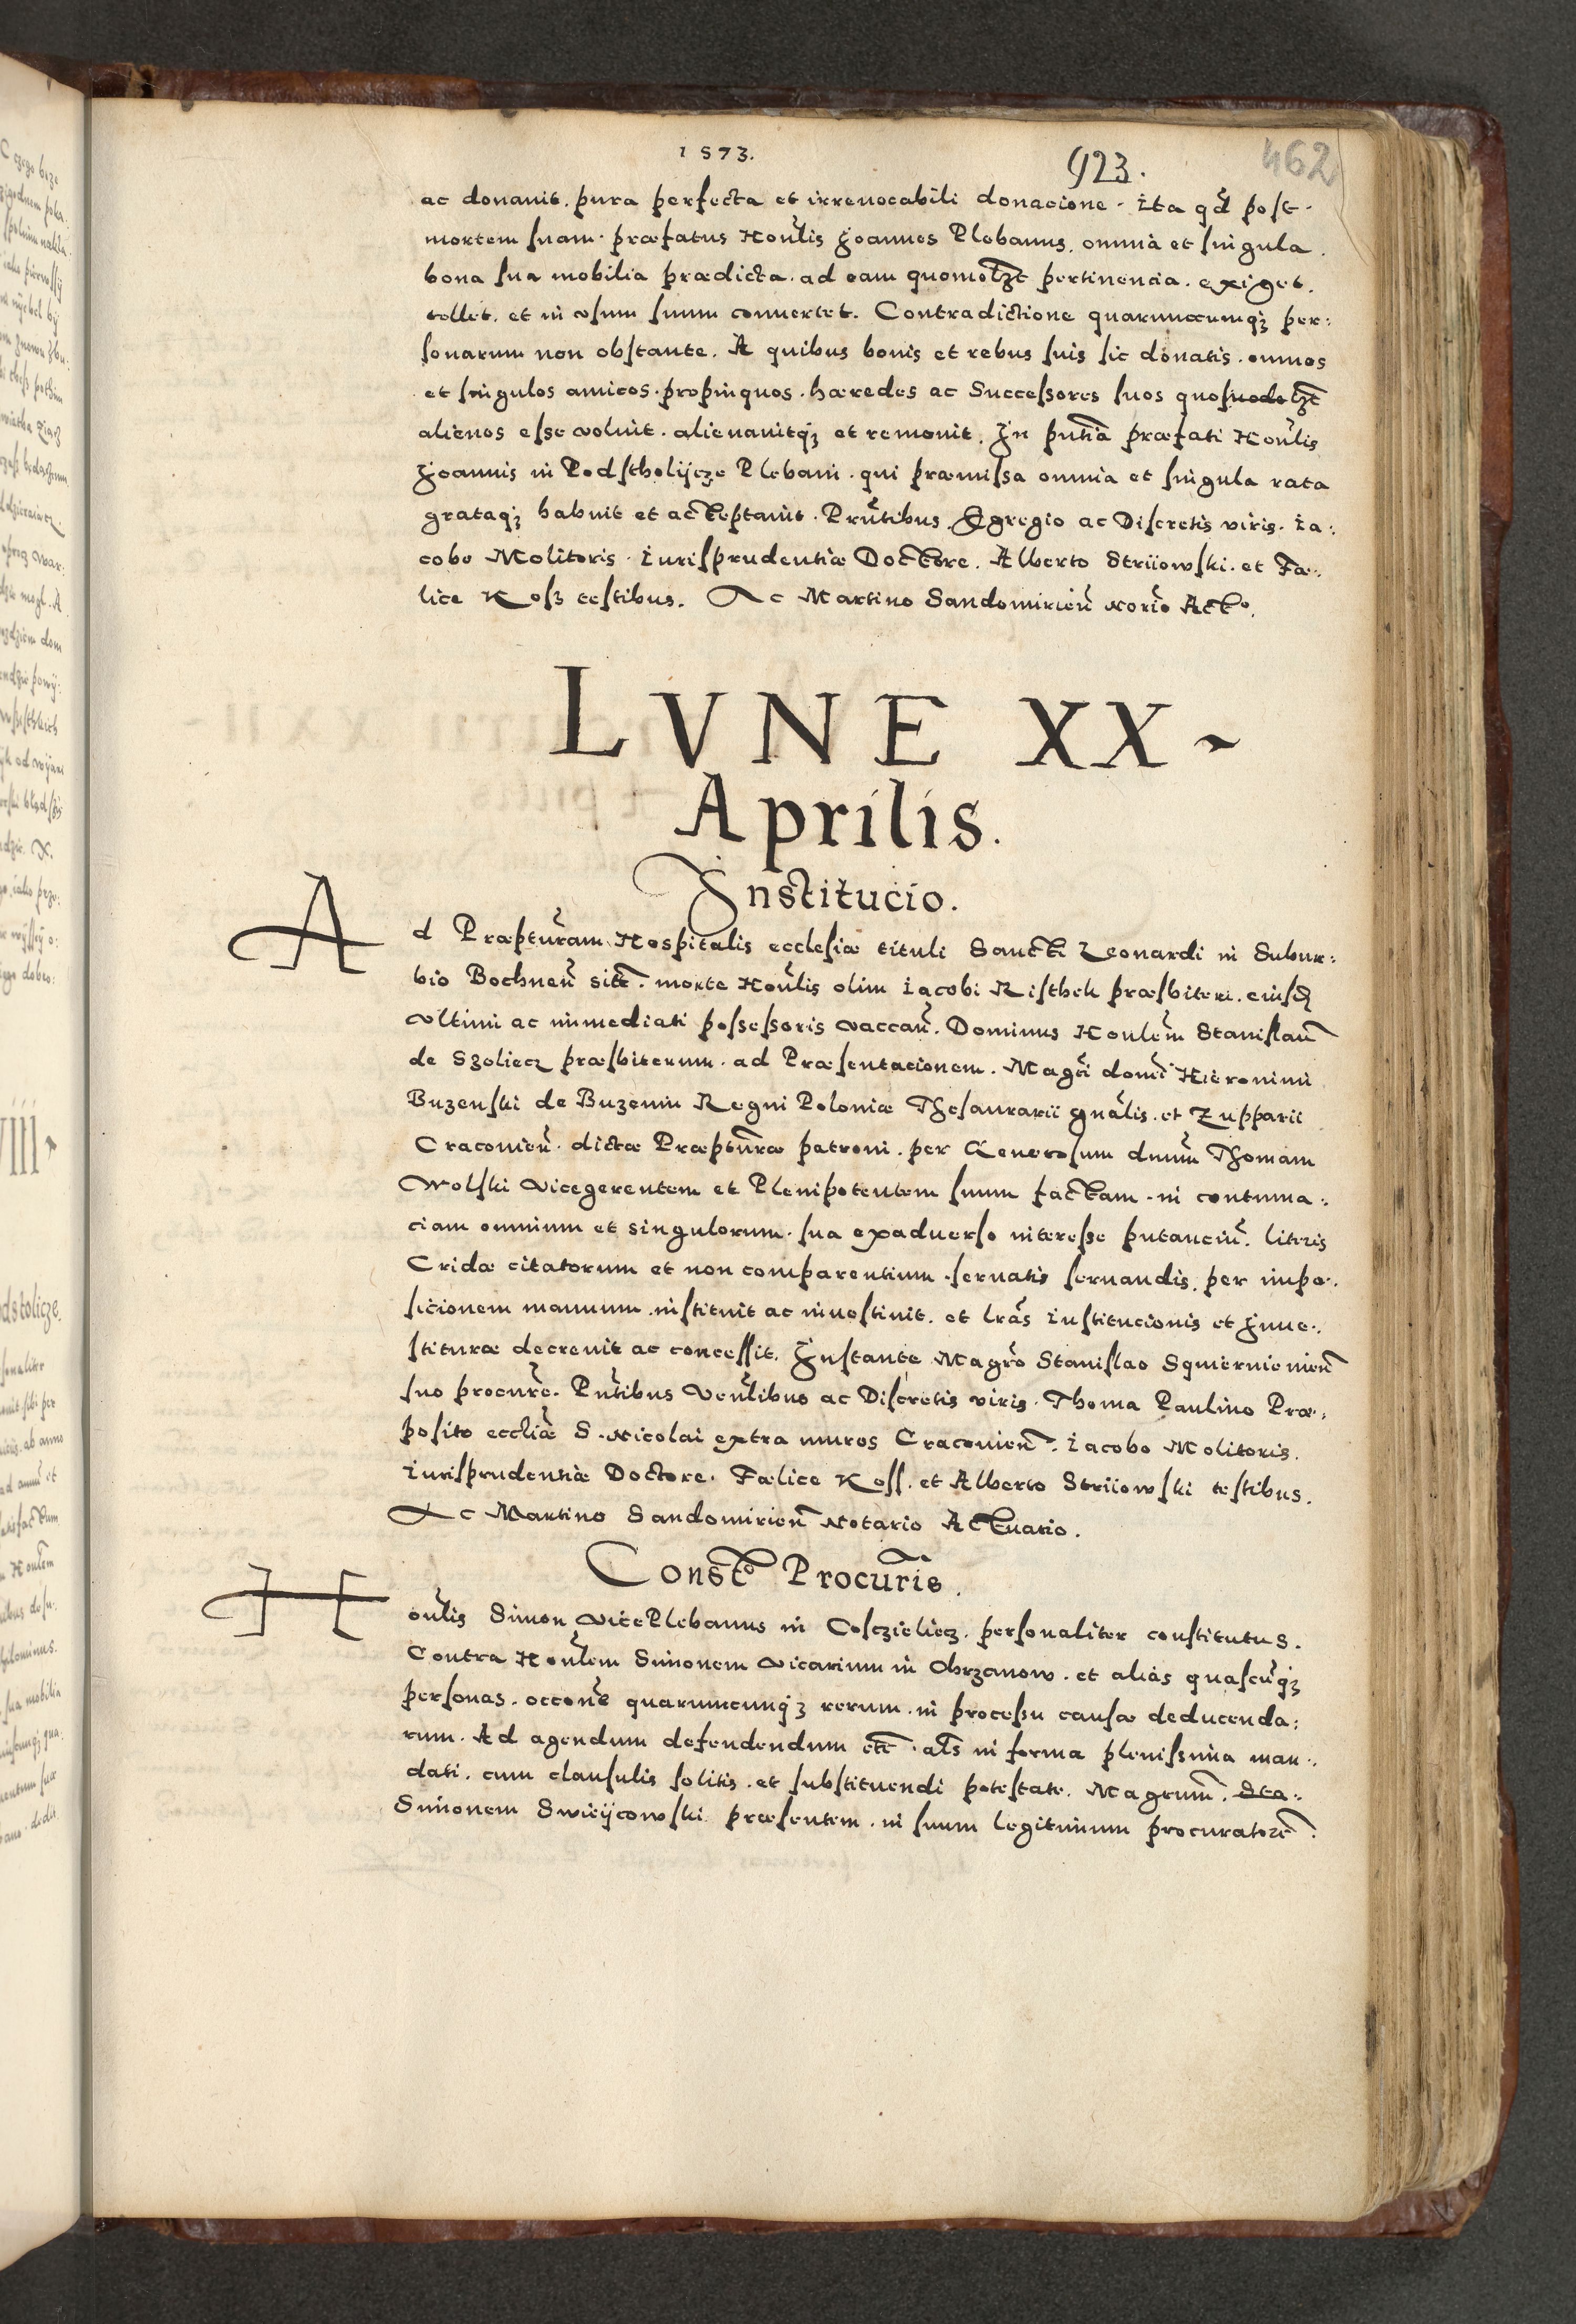 1573.
923.
462
ac donauit. pura perfecta et irreuocabili donacione. Ita qd post.
mortem suam. præfatus Honlis Joannes Plebanus, omnia et singula.
bona sua mobilia prædicta. ad eam quomolzt pertinencia. exiget.
tollet. et in vsum suum conuertet. Contradictione quarumcumqz per:
sonarum non obstante. A quibus bonis et rebus suis sic donatis. omnes
et singulos amicos. propinquos. hæredes ac Successores suos
alienos esse voluit. alienauitqz et remouit. In pntia præfati Honlis
Joannis in Podstholijcze Plebani. qui præmissa omnia et singula rata
grataqz habuit et acceptauit. Prntibus Egregio ac Discretis viris. Ia:
cobo Molitoris. Iurisprudentiæ Doctore. Alberto Striiowski. et Fæ:
lice Kosz testibus. Ac Martino Sandomirien Norio Acto.
LVNE XX
Aprilis.
Institucio.
Ad Præpturam Hospitalis ecclesiæ tituli Sancti Leonardi in Subur:
bio Bochnen sitt. morte Honlis olim Iacobi Risthek præsbiteri. eiusd
vltimi ac immediati possessoris vaccan. Dominus Honlem Stanislau
de Szoliecz præsbiterum. ad Præsentacionem. Magci domi Hieronimi
Buzenski de Buzenin Regni Poloniæ Thesaurarii gnalis. et Zupparii
Cracouien. dictæ Præpturæ patroni. per Generosum dnum Thomam
Wolski vicegerentem et Plenipotentem suum factam. in contuma:
ciam omnium et singulorum. sua exaduerso interesse putanciu. literis
Cridæ citatorum et non comparentium. seruatis seruandis. per impo:
sicionem manuum. instituit ac inuestiuit. et lras Institucionis et Inue:
stituræ decreuit ac concessit. Instante Magro Stanislao Squiernieuien
suo procure. Pntibus Venlibus ac Discretis viris. Thoma Paulino Præ:
posito eccliæ S. Nicolai extra muros Cracouien. Iacobo Molitoris.
Iurisprudentiæ Doctore. Fælice Koss. et Alberto Striiowski testibus.
Ac Martino Sandomirien Notario Actuario.
Constо Procuris.
Honlis Simon vicePlebanus in Cosczieliecz. personaliter constitutus.
Contra Honlem Simonem vicarium in Chrzanow. et alias quascuqz
personas. occone quarumcunqz rerum. in processu causæ deducenda:
rum. Ad agendum defendendum ett. als in forma plenissima man:
dati. cum clausulis solitis. et substituendi potestate. Magrum. Sta:
Simonem Swieijcowski præsentem. in suum legitimum procuratore.